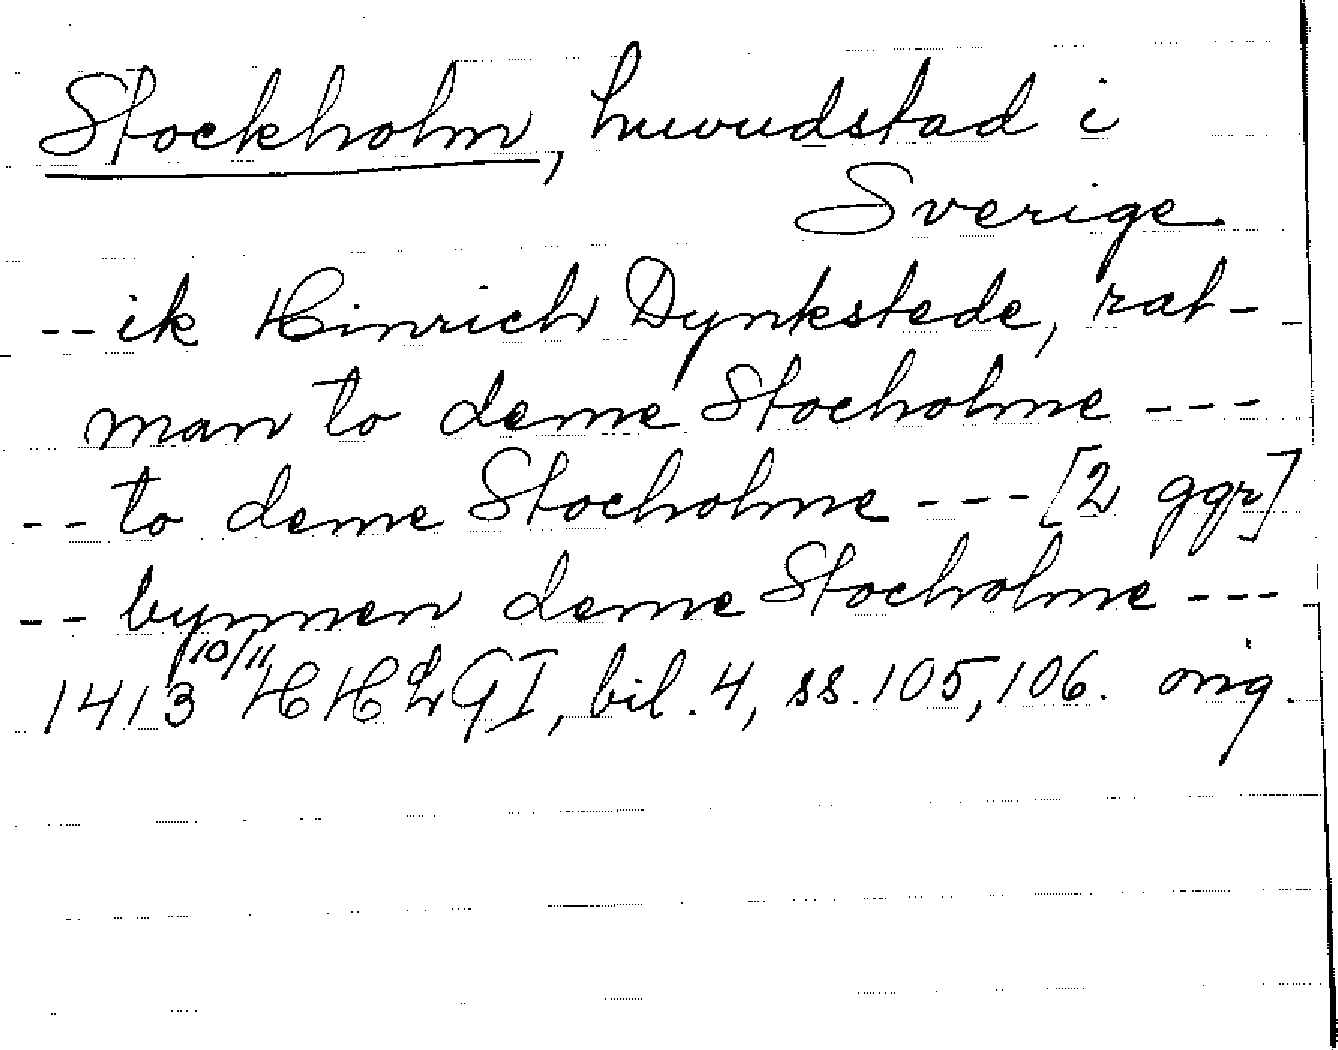 Stockholm, huvudstad i
Sverige
-- ik Hinrich Dynkstede, rat-
man to deme Stocholme ---
-- to deme Stocholme --- [2 ggr]
-- bynnen deme Stocholme ---
1413 10/11 HHLGI, bil. 4, ss. 105, 106. orig.